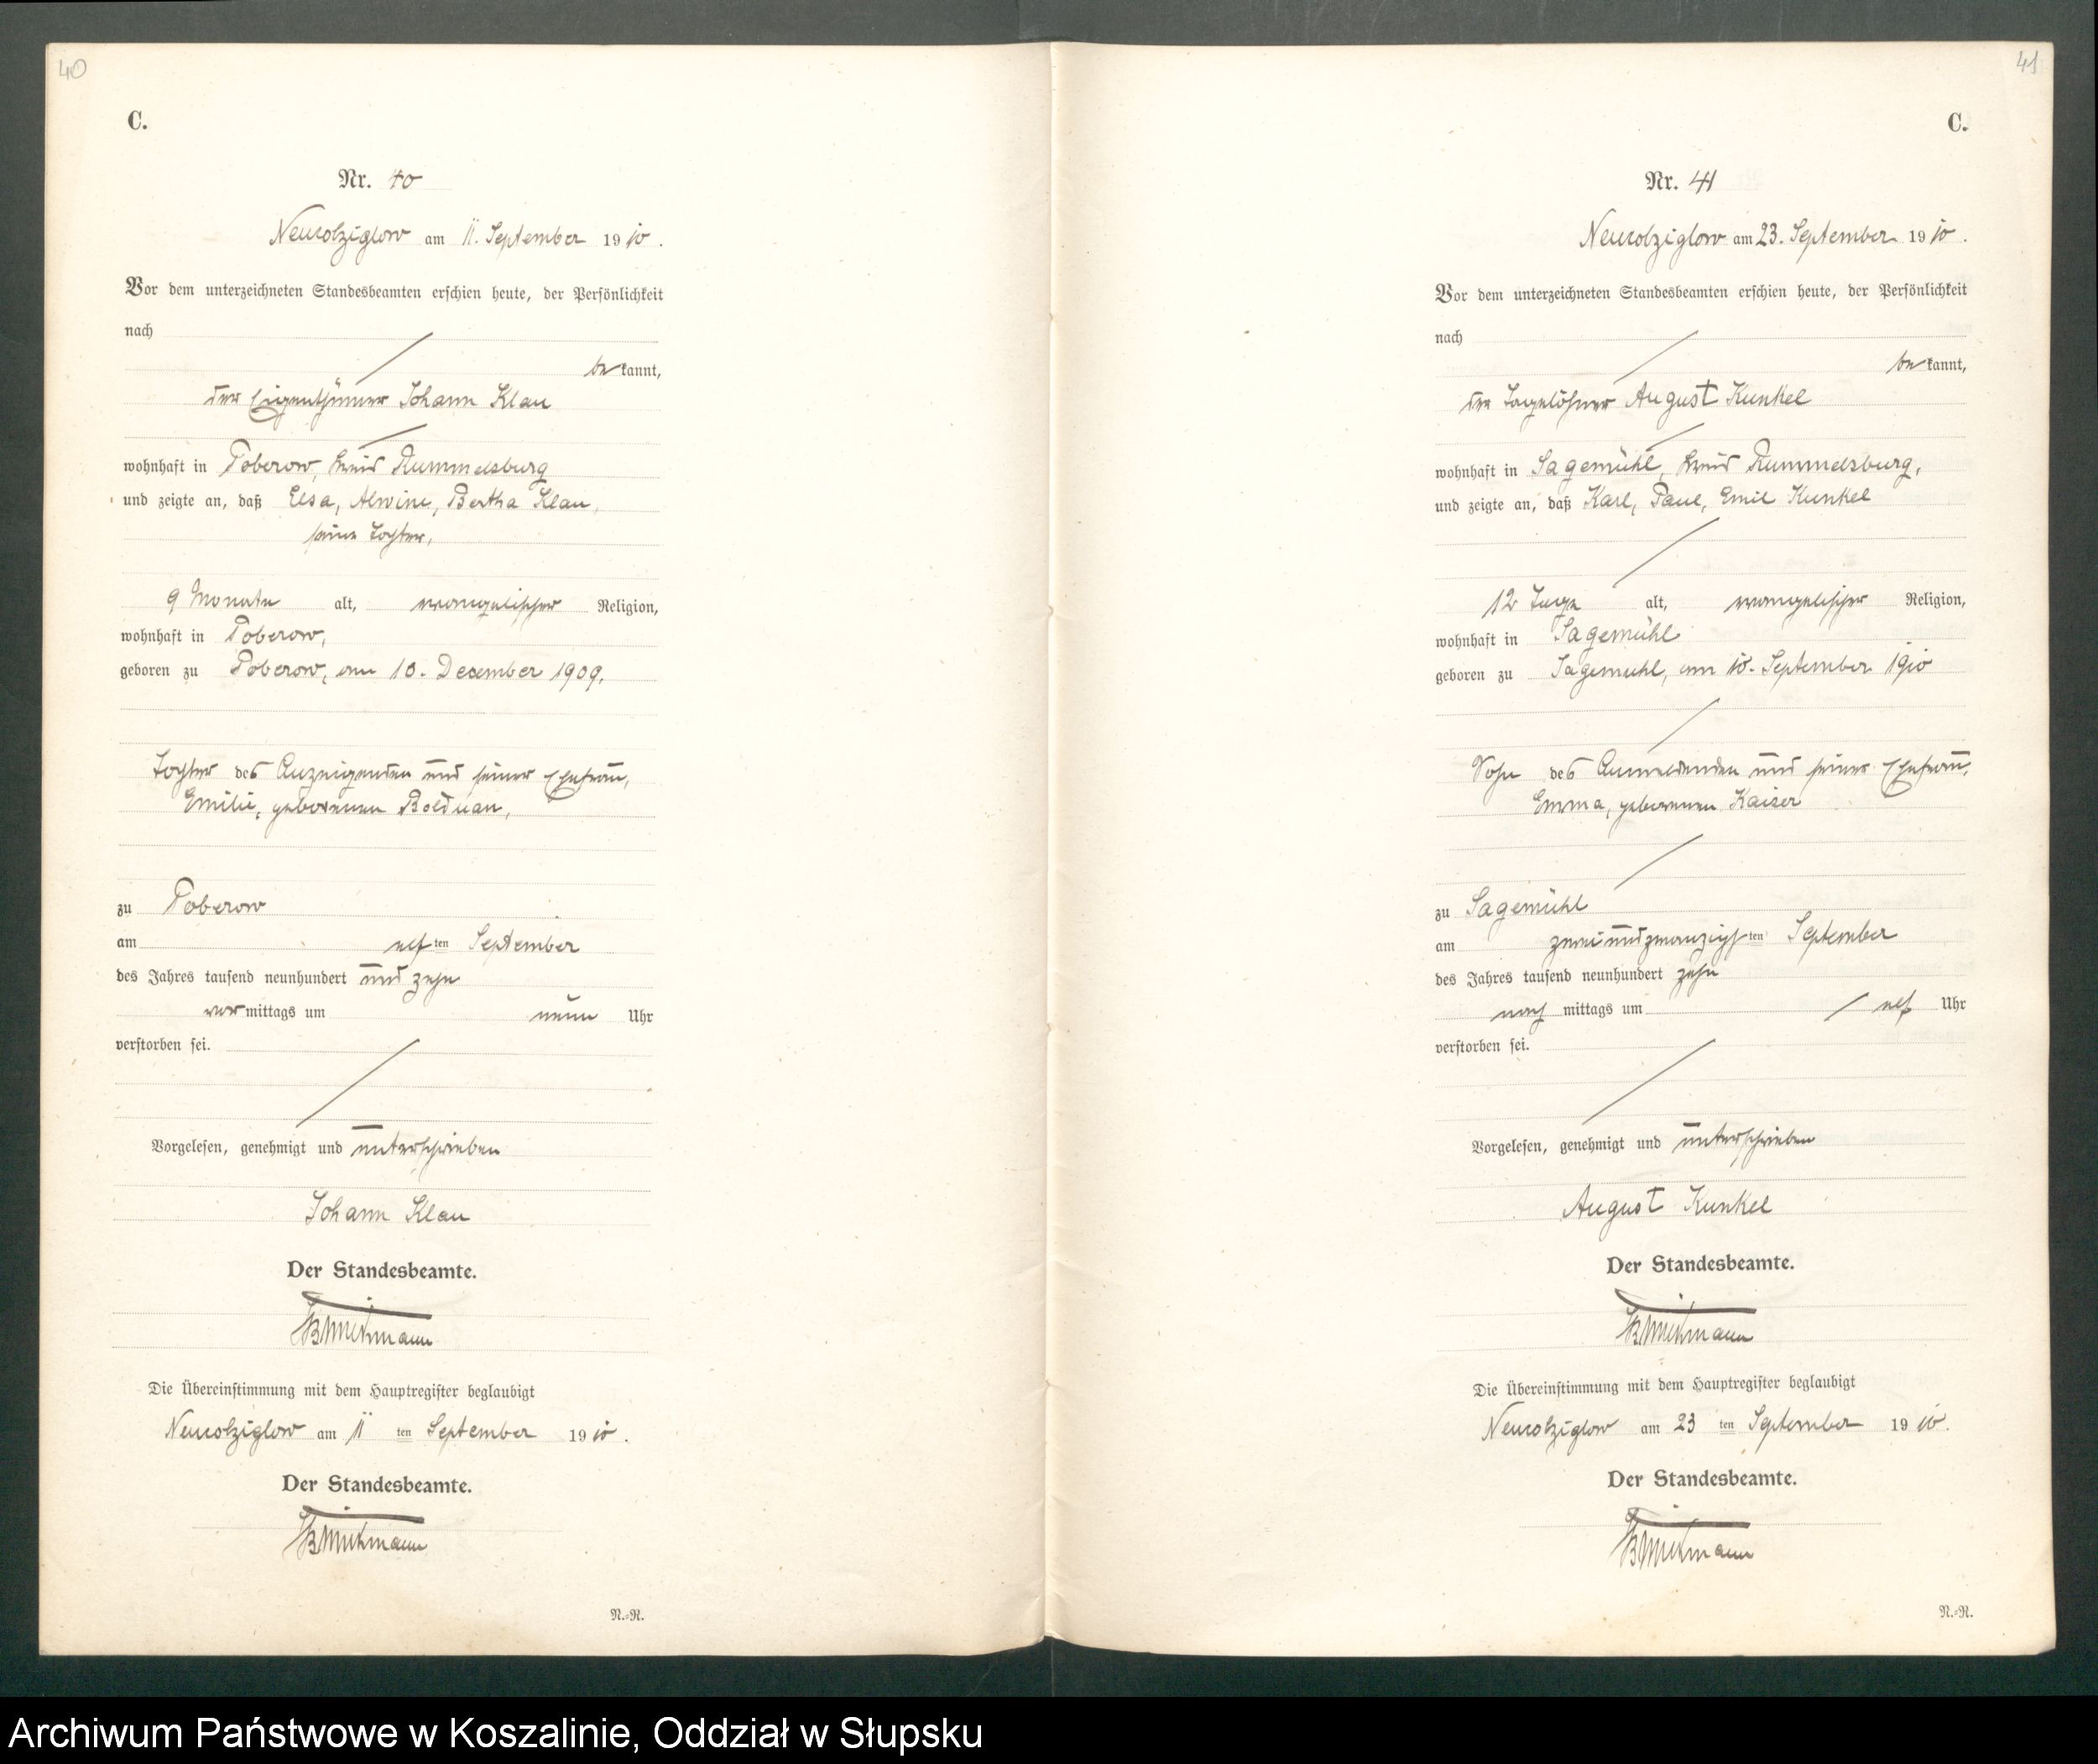 40
C.
Nr. 40
Neukolziglow am 11. September 1910.
Vor dem unterzeichneten Standesbeamten erschien heute, der Persönlichkeit
nach
bekannt,
der Eigenthümer Johann Klau
wohnhaft in Poberow, Kreis Rummelsburg
und zeigte an, daß Elsa, Alwine, Bertha Klau,
seine Tochter,
9 Monate alt, evangelischer Religion,
wohnhaft in Poberow,
geboren zu Poberow, am 10. Dezember 1909,
Tochter des Anzeigenden und seiner Ehefrau,
Emilie, geborenen Bolduan,
zu Poberow
am elften September
des Jahres tausend neunhundert und zehn
vormittags um neun Uhr
verstorben sei.
Vorgelesen, genehmigt und unterschrieben
Johann Klau
Der Standesbeamte.
Die Übereinstimmung mit dem Hauptregister beglaubigt
Neukolziglow am 11 ten September 1910.
Der Standesbeamte.
N.=N.
41
C.
Nr. 41
Neukolziglow am 23. September 1910.
Vor dem unterzeichneten Standesbeamten erschien heute, der Persönlichkeit
nach
bekannt,
der Tagelöhner August Kunkel
wohnhaft in Sagemühl, Kreis Rummelsburg,
und zeigte an, daß Karl, Paul, Emil Kunkel
12 Tage alt, evangelischer Religion,
wohnhaft in Sagemühl
geboren zu Sagemühl, am 10. September 1910
Sohn des Anmeldenden und seiner Ehefrau,
Emma, geborenen Kaiser
zu Sagemühl
am zweiundzwanzigsten September
des Jahres tausend neunhundert zehn
nachmittags um elf Uhr
verstorben sei.
Vorgelesen, genehmigt und unterschrieben
August Kunkel
Der Standesbeamte.
Die Übereinstimmung mit dem Hauptregister beglaubigt
Neukolziglow am 23 ten September 1910.
Der Standesbeamte.
N.=N.
Archiwum Państwowe w Koszalinie, Oddział w Słupsku